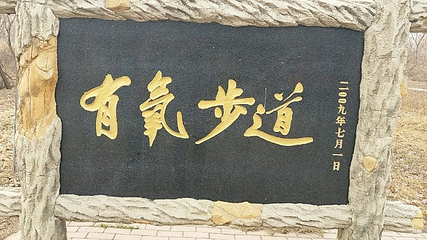 有氧步道
二00九年七月一日